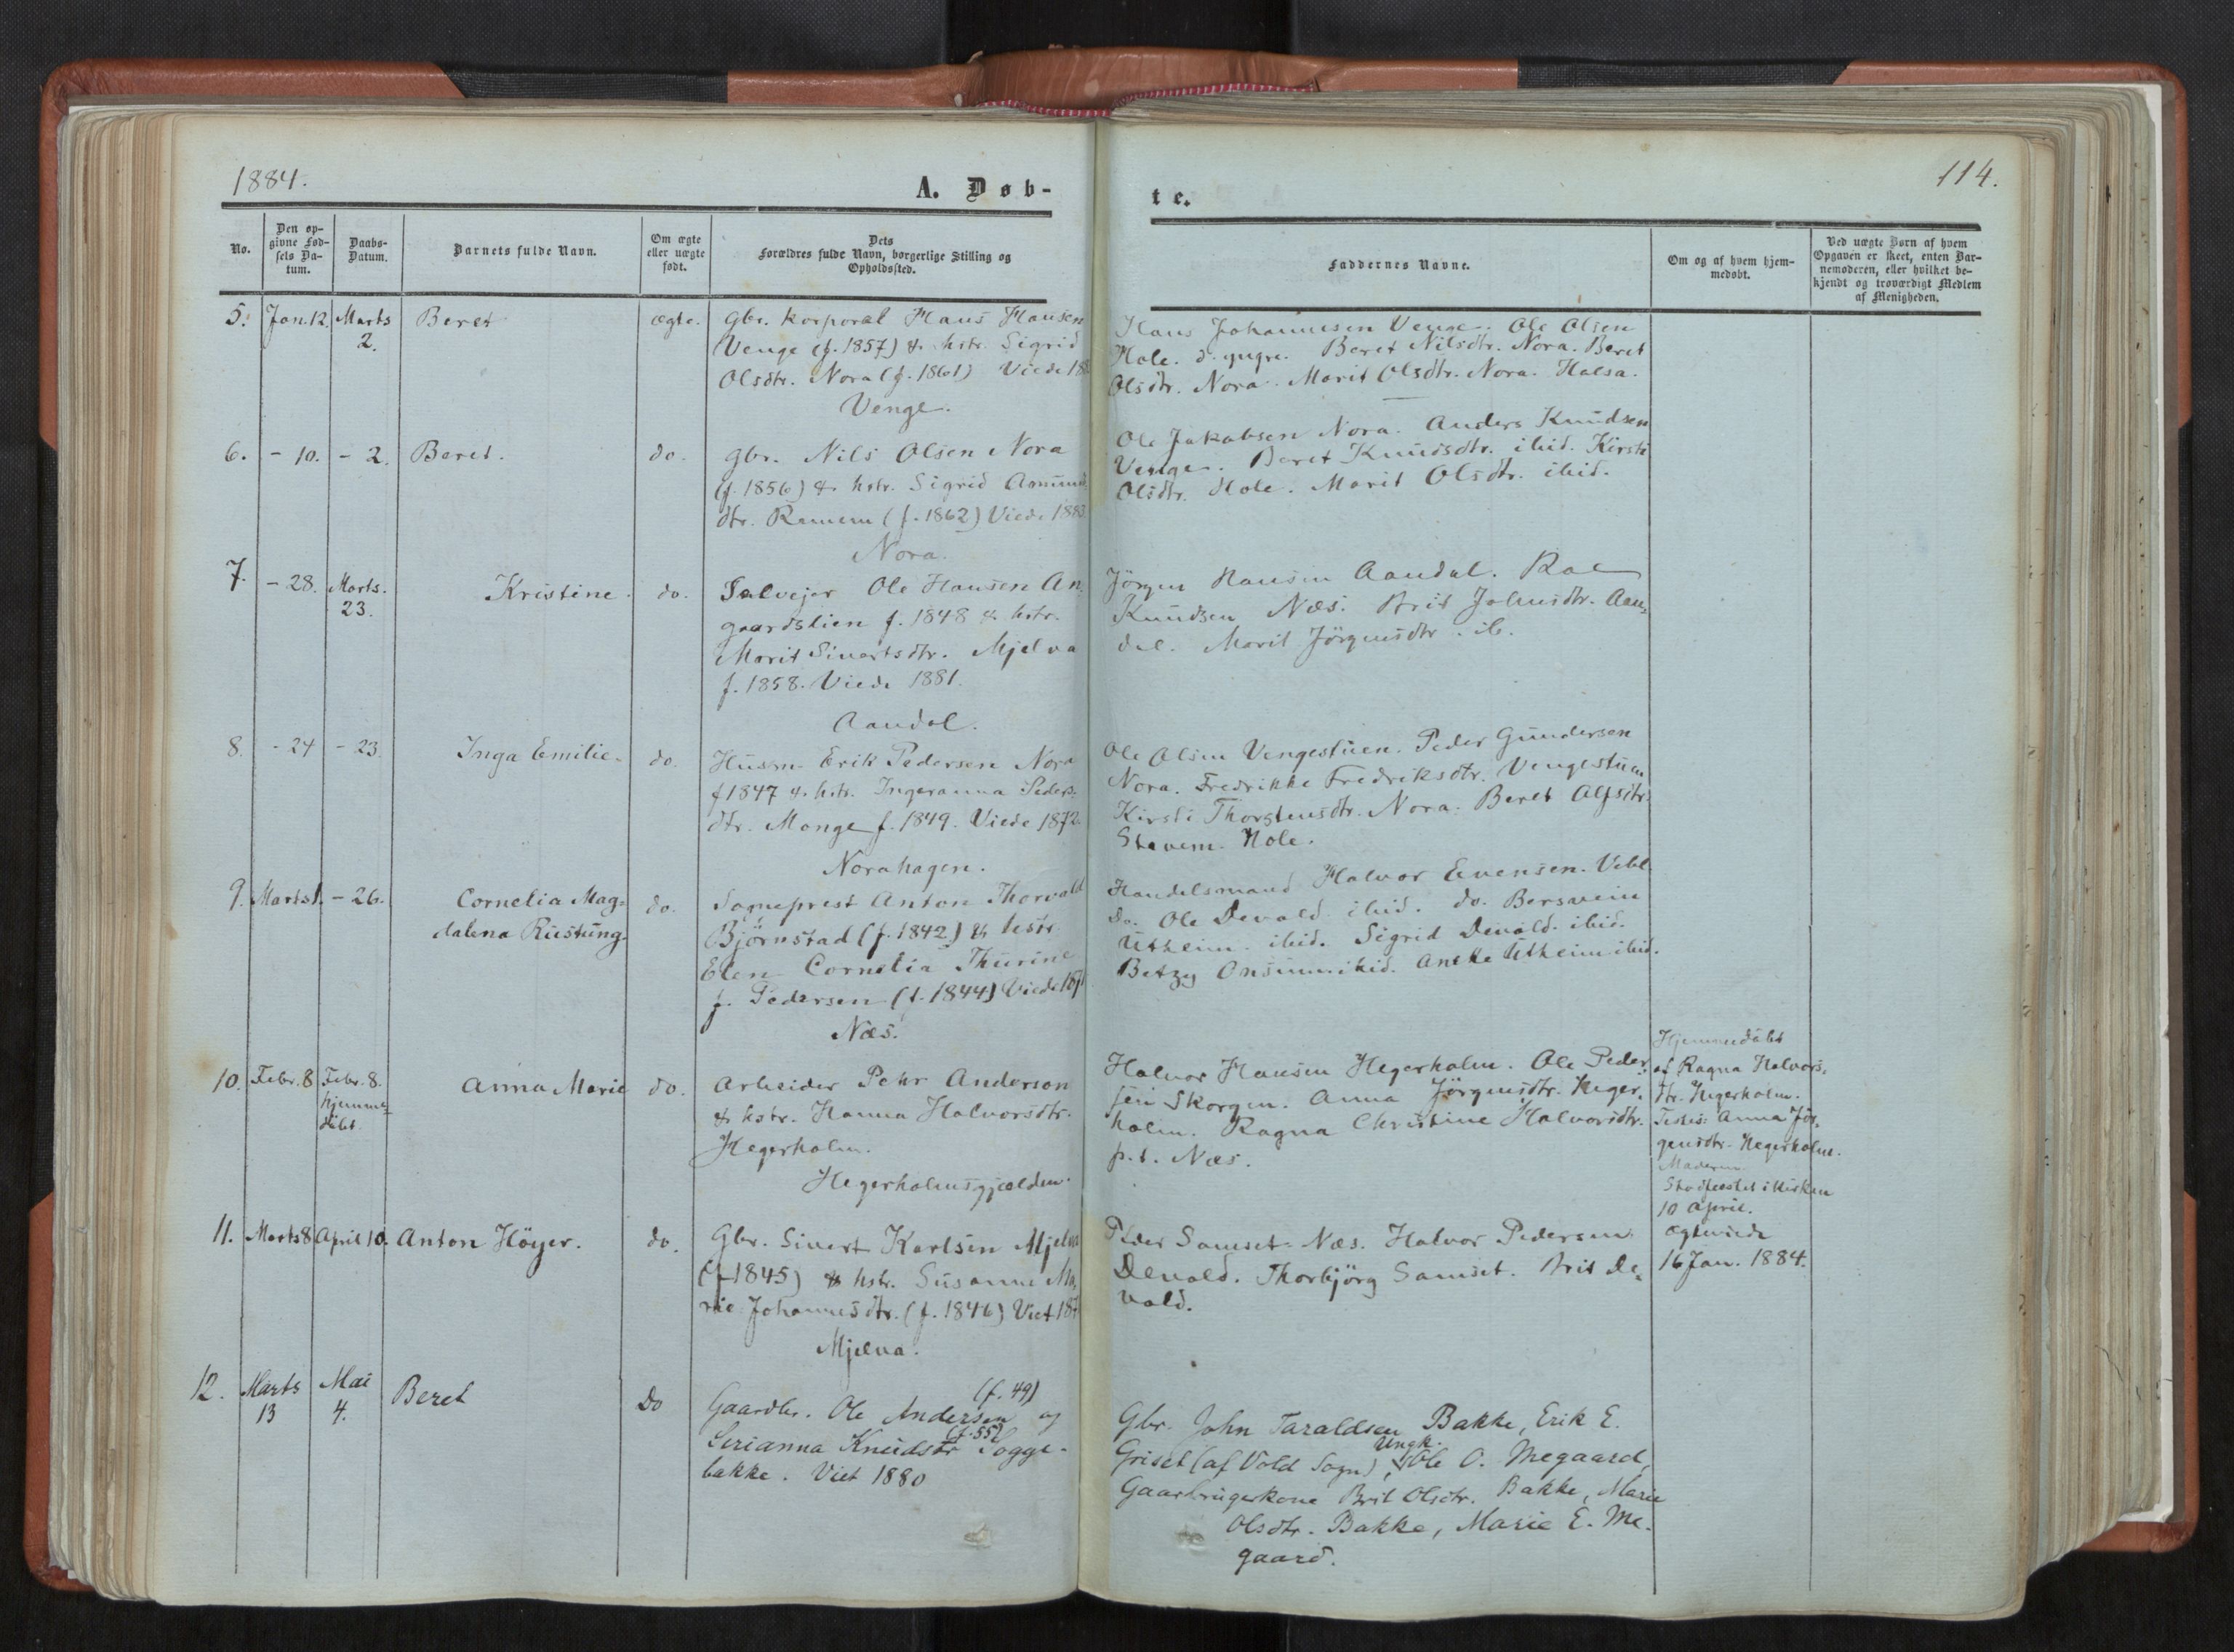 1884.
A. Døb-
No.
Den op-
givne Fød-
sels Da-
tum.
Daabs-
Datum.
Barnets fulde Navn.
Om ægte
eller uægte
født.
Dets
Forældres fulde Navn, borgerlige Stilling og
Opholdssted.
5. Jan. 12. Marts
2.
Beret
ægte.
Gbr. korporal Hans Hansen
Venge (f. 1857) & hstr. Sigrid
Olsdtr. Nora (f. 1861) Viede 188
Venge.
6. - 10. - 2. Beret. do.
Gbr. Nils Olsen Nora
(f. 1856) & hstr. Sigrid Amund
dtr. Remem (f. 1862) Viede 1883
Nora.
7. - 28. Marts.
23.
Kristine. do.
Selvejer Ole Hansen An
gaardslien f. 1848 & hstr.
Marit Sivertsdtr. Mjelva
f. 1858. Viede 1881.
Aandal.
8. - 24 - 23. Inga Emilie. do.
Husm. Erik Pedersen Nora
f 1847 & hstr. Ingeranna Peders-
dtr. Monge f. 1849. Viede 1872.
Norahagen.
9. Marts 1. - 26. Cornelia Mag-
dalena Rustung. do.
Sogneprest Anton Thorvald
Bjørnstad (f. 1842) & hstr.
Elen Cornelia Thurine
f. Pedersen (f. 1844) Viede 187
Næs.
10. Febr. 8 Febr. 8.
hjemme-
døbt.
Anna Marie do.
Arbeider Pehr Anderson
& hstr. Hanna Halvorsdtr.
Hegerholm.
Hegerholmsgjælden.
11. Marts 8 April 10. Anton Höyer. do.
Gbr. Sivert Karlsen Mjelva
(f 1845) & hstr. Susanne Ma,
rie Johannesdtr. (f. 1846) Viet 187
Mjelva.
12. Marts
13
Mai
4.
Beret Do
(f. 49)
Gaardbr. Ole Andersen og
(f. 55)
Serianna Knudsdtr Sogge-
bakke. Viet 1880
114.
te.
Faddernes Navne.
Om og af hvem hjem-
medøbt.
Ved uægte Børn af hvem
Opgaven er skeet, enten Bar-
nemoderen, eller hvilket be-
kjendt og troværdigt Medlem
af Menigheden.
Hans Johannesen Venge. Ole Olsen
Hole. d. yngre. Beret Nilsdtr. Nora. Beret
Olsdtr. Nora. Marit Olsdtr. Nora. Halsa.
Ole Jakobsen Nora. Anders Knudsen
Venge. Beret Knudsdtr. ibid. Kirsti
Olsdtr. Hole. Marit Olsdtr. ibid.
Jörgen Hansen Aandal.
Knudsen Næs. Brit Johnsdtr. Aan,
dal. Marit Jörgensdtr. ib.
Ole Olsen Vengestuen. Peder Gundersen
Nora. Fredrikke Fredriksdtr. Vengestuen
Kirsti Thorstensdtr. Nora. Beret Alfsdtr.
Stavem. Hole.
Handelsmand Halvor Evensen. Vebl.
Do. Ole Devold ibid. do. Bersvein
Utheim. ibid. Sigrid Devold. ibid.
Betzy Onsum. ibid. Anske Utheim ibid.
Halvor Hansen Hegerholm. Ole Peder,
sen Skorgen. Anna Jörgensdtr. Heger,
holm. Ragna Christine Halvorsdtr.
p. t. Næs.
Hjemmedöbt
af Ragna Halvors,
dtr. Hegerholm.
Testes: Anna Jör,
gensdtr. Hegerholm.
Moderen.
Stadfæstet i Kirken
10 April.
Ægteviede
16 Jan. 1884.
Peder Samset. Næs. Halvor Pedersen
Devold. Thorbjörg Samset. Brit De,
vold.
Gbr. John Taraldsen Bakke, Erik E.
Griset (af Vold Sogn), Ungk. Ole O. Megaard,
Gaardbrugerkone Brit Olsdtr. Bakke, Marie
Olsdtr. Bakke, Marie E. Me-
gaard.